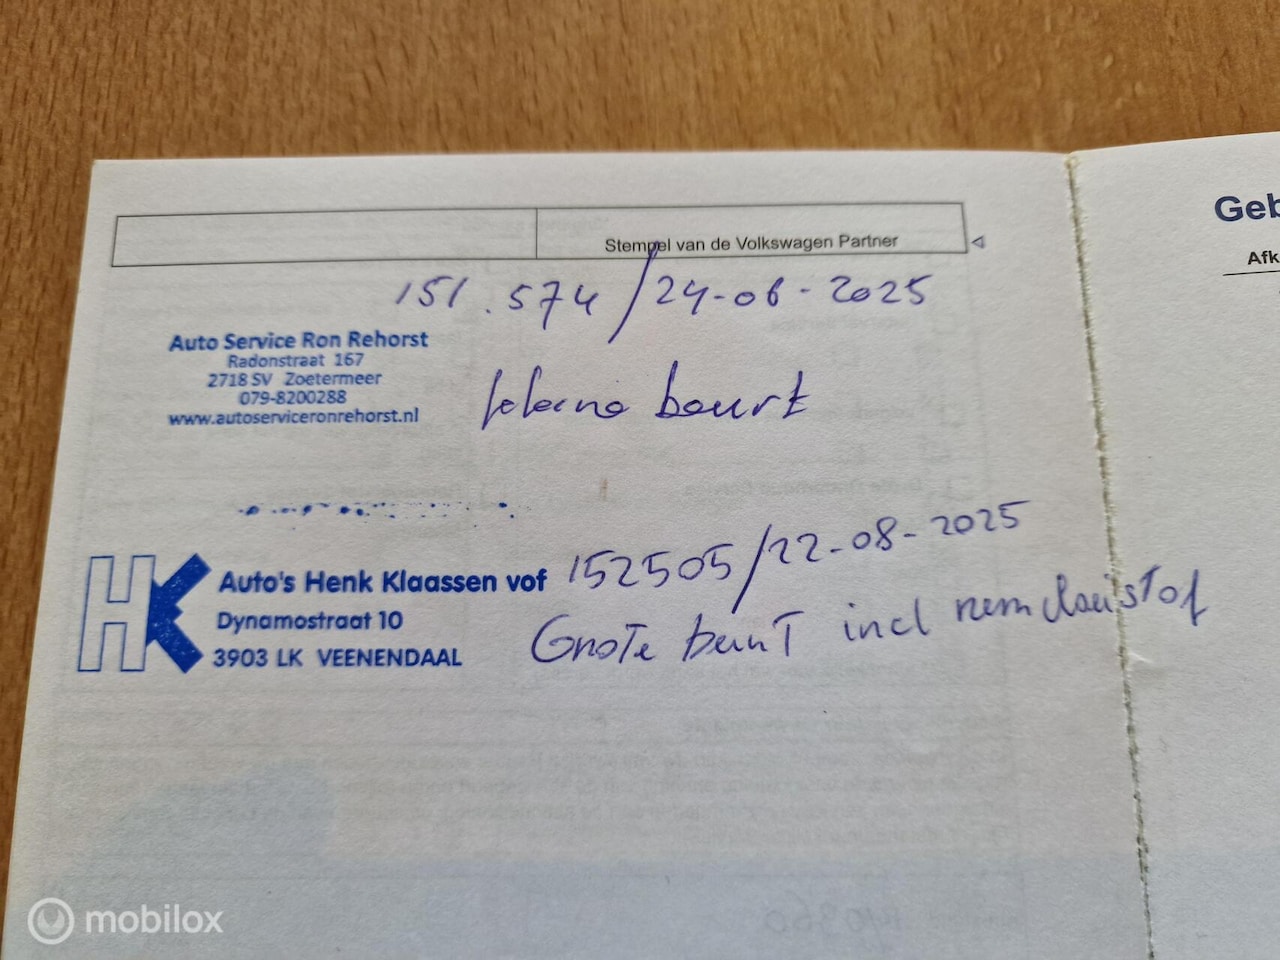 Stempel van de Volkswagen Partner
Geb
Afk
151.574/24-06-2025
Auto Service Ron Rehorst
Radonstraat 167
2718 SV Zoetermeer
079-8200288
www.autoserviceronrehorst.nl
kleine beurt
152505/22-08-2025
Auto's Henk Klaassen vof
Dynamostraat 10
3903 LK VEENENDAAL
HK
Grote beurt incl remvloeistof
mobilox